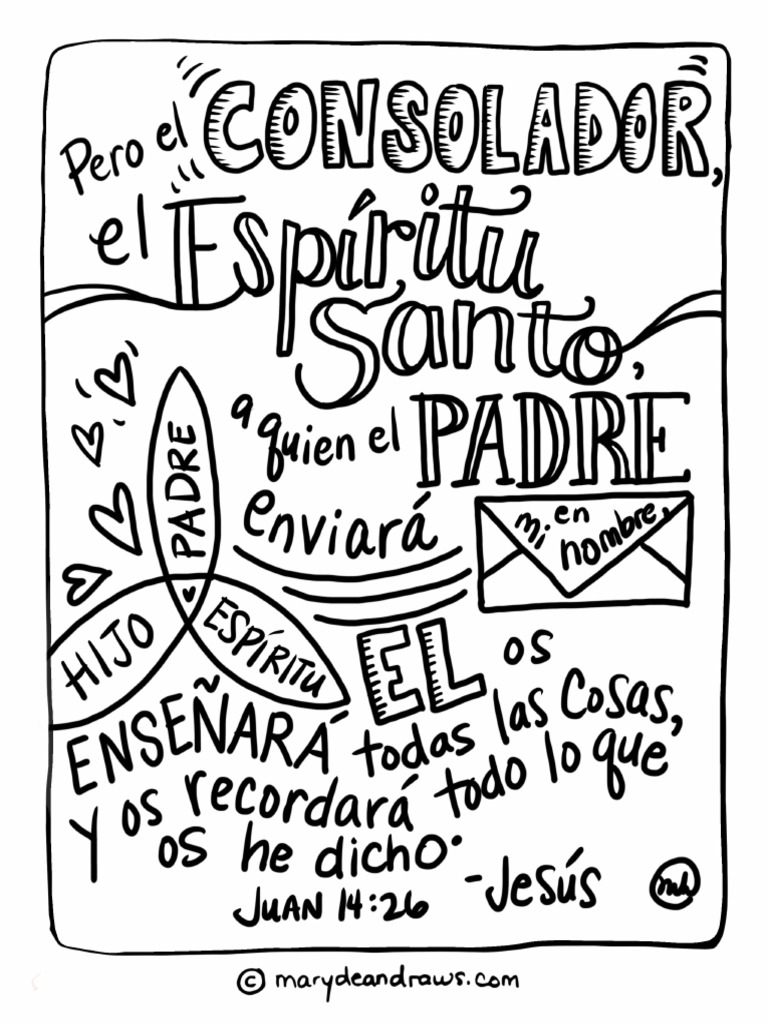 Pero el CONSOLADOR,
el Espíritu
Santo,
a quien el PADRE
enviará
mi en
nombre,
PADRE
HIJO
ESPÍRITU
EL os
ENSEÑARÁ todas las cosas,
y os recordará todo lo que
os he dicho.
-Jesús
JUAN 14:26
mh
© marydeandraws.com